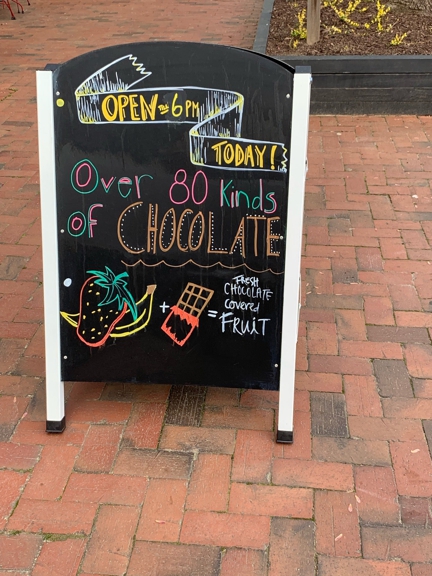 OPEN TIL 6 PM
TODAY!
Over 80 Kinds
of CHOCOLATE
+ = FRESH
CHOCOLATE
covered
FRUIT